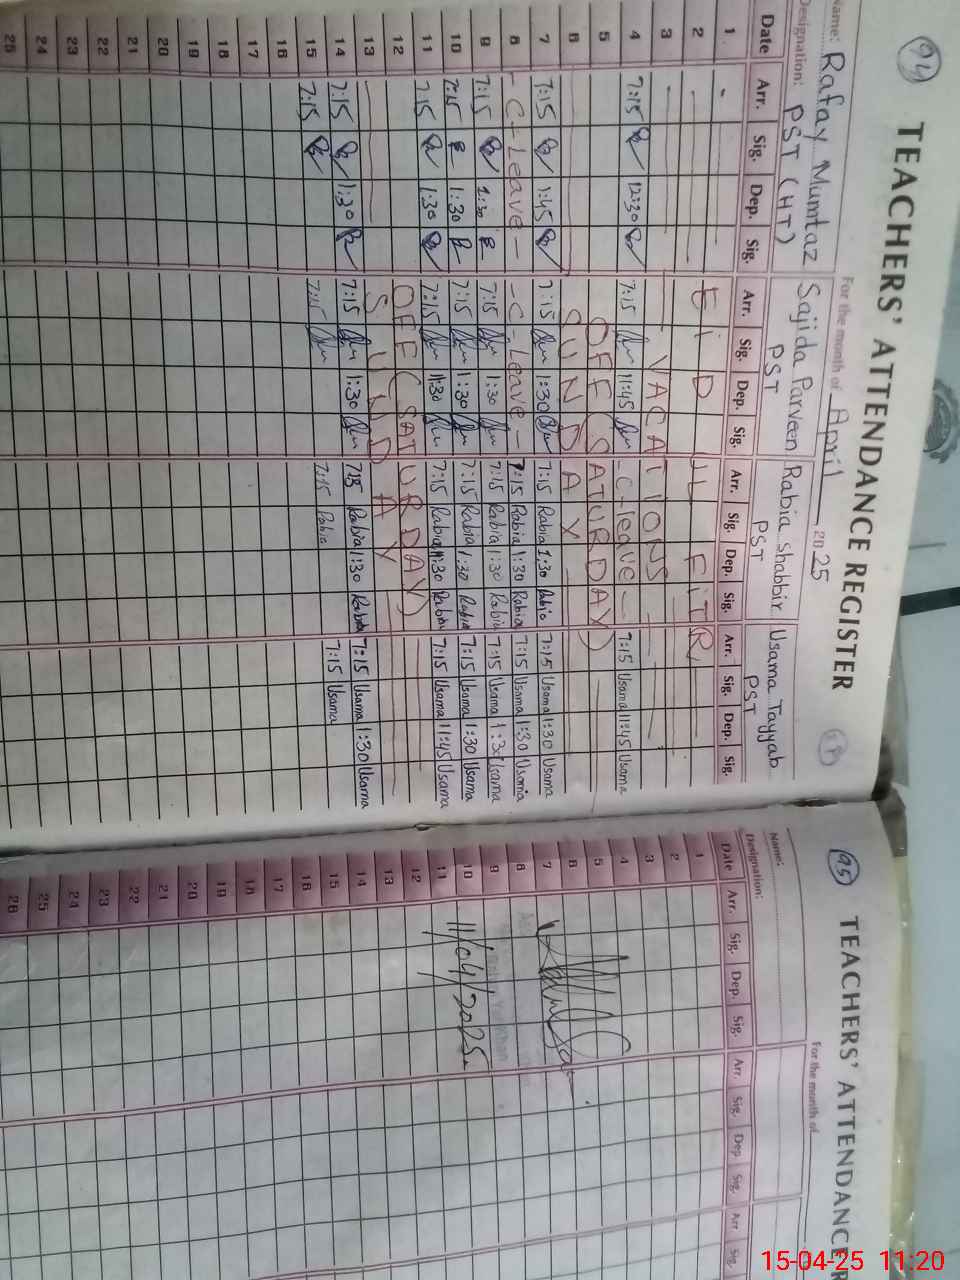 94
TEACHERS' ATTENDANCE REGISTER
For the month of April 2025
Name: Rafay Mumtaz Sajida Parveen Rabia Shabbir Usama Tayyab
Designation: PST (HT) PST PST PST
Date Arr. Sig. Dep. Sig. Arr. Sig. Dep. Sig. Arr. Sig. Dep. Sig. Arr. Sig. Dep. Sig.
1
2 EID UL FITR
3 VACATIONS
4 7:15 12:30 7:15 11:45 -C-leave- 7:15 Usama 11:45 Usama
5 OFF (SATURDAY)
6 SUNDAY
7 7:15 1:45 7:15 1:30 7:15 Rabia 1:30 Rabia 7:15 Usama 1:30 Usama
8 -C-Leave- -C-Leave- 7:15 Rabia 1:30 Rabia 7:15 Usama 1:30 Usama
9 7:15 1:30 7:15 1:30 7:15 Rabia 1:30 Rabia 7:15 Usama 1:30 Usama
10 7:15 1:30 7:15 1:30 7:15 Rabia 1:30 Rabia 7:15 Usama 1:30 Usama
11 7:15 1:30 7:15 11:30 7:15 Rabia 11:30 Rabia 7:15 Usama 11:45 Usama
12 OFF (SATURDAY)
13 SUNDAY
14 7:15 1:30 7:15 1:30 7:15 Rabia 1:30 Rabia 7:15 Usama 1:30 Usama
15 7:15 7:15 7:15 Rabia 7:15 Usama
16
17
18
19
20
21
22
23
24
25
95
TEACHERS' ATTENDANCE R
For the month of
Name:
Designation:
Date Arr. Sig. Dep. Sig. Arr. Sig. Dep Sig. Arr Sig.
1
2
3
4
5
6
7
8
9
10
11 11/04/2025
12
13
14
15
16
17
18
19
20
21
22
23
24
25
26
15-04-25 11:20